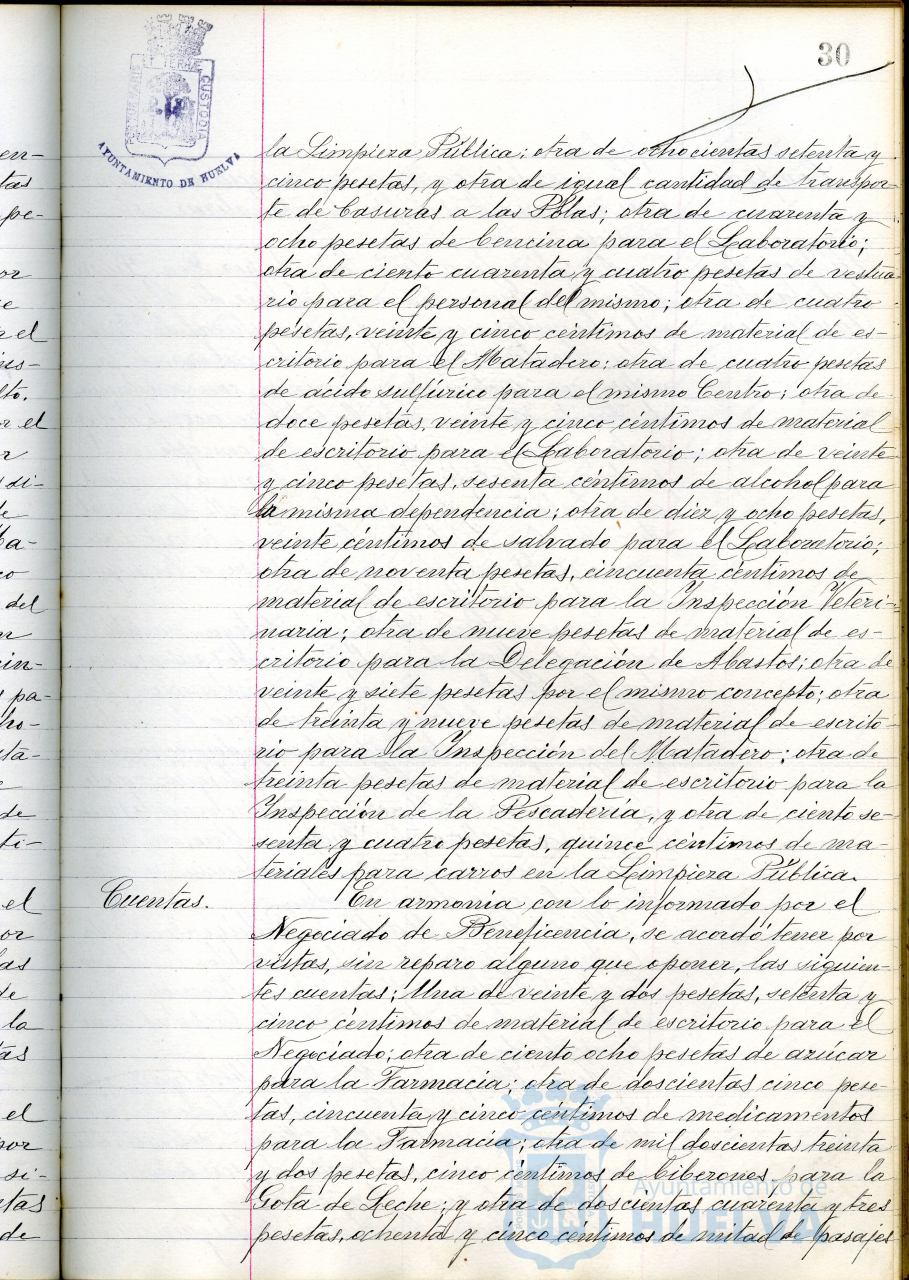 30
PORTUS MARIS ET TERRÆ CUSTODIA
AYUNTAMIENTO DE HUELVA
la Limpieza Pública; otra de ochocientas setenta y
cinco pesetas, y otra de igual cantidad de transpor-
te de basuras a las Pilas; otra de cuarenta y
ocho pesetas de bencina para el Laboratorio;
otra de ciento cuarenta y cuatro pesetas de vestua-
rio para el personal del mismo; otra de cuatro
pesetas, veinte y cinco céntimos de material de es-
critorio para el Matadero; otra de cuatro pesetas
de ácido sulfúrico para el mismo Centro; otra de
doce pesetas, veinte y cinco céntimos de material
de escritorio para el Laboratorio; otra de veinte
y cinco pesetas, sesenta céntimos de alcohol para
la misma dependencia; otra de diez y ocho pesetas,
veinte céntimos de salvado para el Laboratorio;
otra de noventa pesetas, cincuenta céntimos de
material de escritorio para la Inspección Veteri-
naria; otra de nueve pesetas de material de es-
critorio para la Delegación de Abastos; otra de
veinte y siete pesetas por el mismo concepto; otra
de treinta y nueve pesetas de material de escrito-
rio para la Inspección del Matadero; otra de
treinta pesetas de material de escritorio para la
Inspección de la Pescadería, y otra de ciento se-
senta y cuatro pesetas, quince céntimos de ma-
teriales para carros en la Limpieza Pública.
Cuentas. En armonía con lo informado por el
Negociado de Beneficencia, se acordó tener por
vistas, sin reparo alguno que oponer, las siguien-
tes cuentas: Una de veinte y dos pesetas, setenta y
cinco céntimos de material de escritorio para el
Negociado; otra de ciento ocho pesetas de azúcar
para la Farmacia; otra de doscientas cinco pese-
tas, cincuenta y cinco céntimos de medicamentos
para la Farmacia; otra de mil doscientas treinta
y dos pesetas, cinco céntimos de biberones para la
Gota de Leche; y otra de doscientas cuarenta y tres
pesetas, ochenta y cinco céntimos de mitad de pasajes
Ayuntamiento de
HUELVA